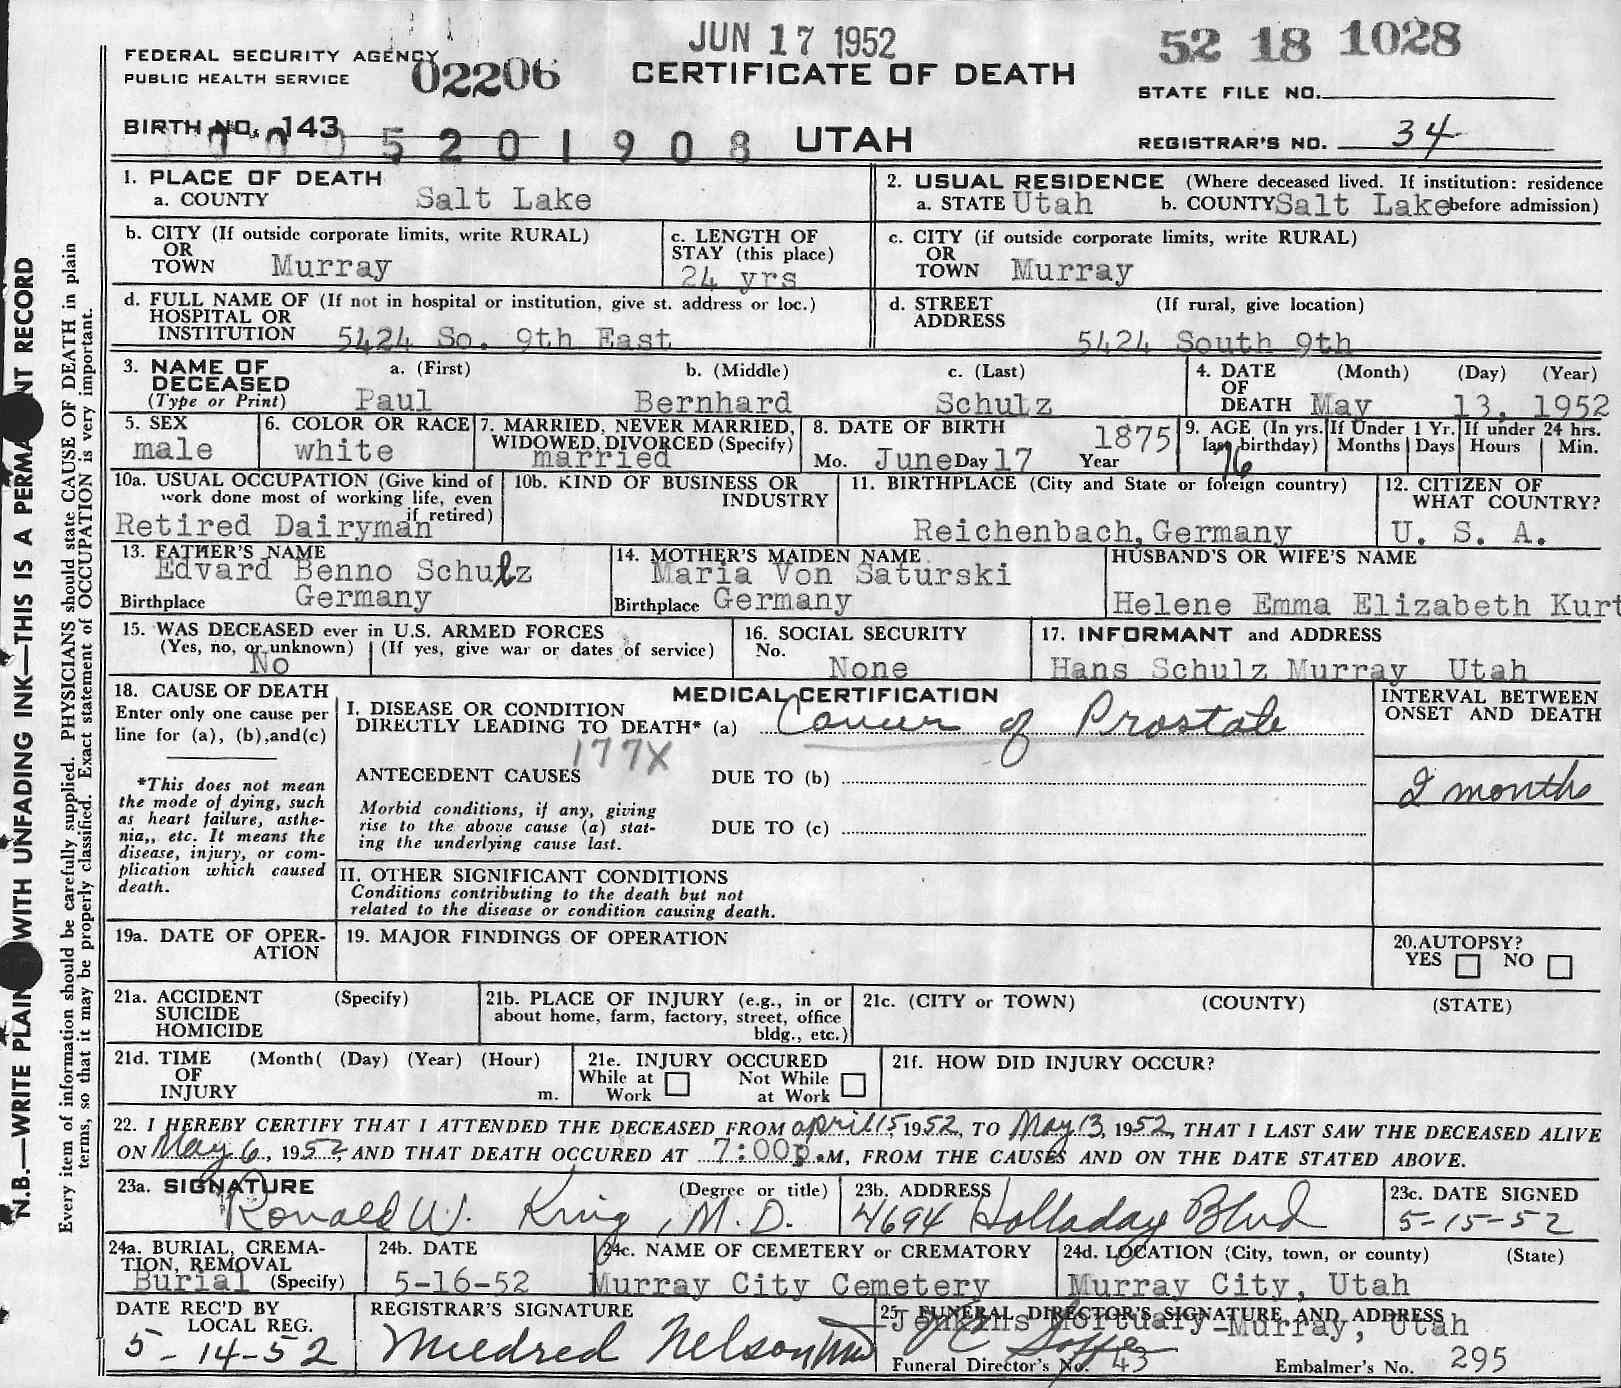 JUN 17 1952
52 18 1028
FEDERAL SECURITY AGENCY
PUBLIC HEALTH SERVICE
02206
CERTIFICATE OF DEATH
STATE FILE NO.
BIRTH NO. 143
5201908
UTAH
REGISTRAR'S NO. 34
1. PLACE OF DEATH
a. COUNTY Salt Lake
2. USUAL RESIDENCE (Where deceased lived. If institution: residence before admission)
a. STATE Utah b. COUNTY Salt Lake
b. CITY (If outside corporate limits, write RURAL)
OR
TOWN Murray
c. LENGTH OF
STAY (this place)
24 yrs
c. CITY (if outside corporate limits, write RURAL)
OR
TOWN Murray
d. FULL NAME OF (If not in hospital or institution, give st. address or loc.)
HOSPITAL OR
INSTITUTION 5424 So. 9th East
d. STREET (If rural, give location)
ADDRESS
5424 South 9th
3. NAME OF
DECEASED
(Type or Print)
a. (First) b. (Middle) c. (Last)
Paul Bernhard Schulz
4. DATE (Month) (Day) (Year)
OF
DEATH May 13, 1952
5. SEX
male
6. COLOR OR RACE
white
7. MARRIED, NEVER MARRIED,
WIDOWED, DIVORCED (Specify)
married
8. DATE OF BIRTH 1875
Mo. June Day 17 Year
9. AGE (In yrs.
last birthday)
76
If Under 1 Yr.
Months Days
If under 24 hrs.
Hours Min.
10a. USUAL OCCUPATION (Give kind of
work done most of working life, even
if retired)
Retired Dairyman
10b. KIND OF BUSINESS OR
INDUSTRY
11. BIRTHPLACE (City and State or foreign country)
Reichenbach, Germany
12. CITIZEN OF
WHAT COUNTRY?
U. S. A.
13. FATHER'S NAME
Edvard Benno Schulz
Birthplace Germany
14. MOTHER'S MAIDEN NAME
Maria Von Saturski
Birthplace Germany
HUSBAND'S OR WIFE'S NAME
Helene Emma Elizabeth Kurt
15. WAS DECEASED ever in U.S. ARMED FORCES
(Yes, no, or unknown) (If yes, give war or dates of service)
No
16. SOCIAL SECURITY
No.
None
17. INFORMANT and ADDRESS
Hans Schulz Murray Utah
18. CAUSE OF DEATH
Enter only one cause per
line for (a), (b),and(c)
*This does not mean
the mode of dying, such
as heart failure, asthe-
nia,, etc. It means the
disease, injury, or com-
plication which caused
death.
MEDICAL CERTIFICATION
I. DISEASE OR CONDITION
DIRECTLY LEADING TO DEATH* (a) Cancer of Prostate
177X
ANTECEDENT CAUSES DUE TO (b)
Morbid conditions, if any, giving
rise to the above cause (a) stat-
ing the underlying cause last.
DUE TO (c)
II. OTHER SIGNIFICANT CONDITIONS
Conditions contributing to the death but not
related to the disease or condition causing death.
INTERVAL BETWEEN
ONSET AND DEATH
2 months
19a. DATE OF OPER-
ATION
19. MAJOR FINDINGS OF OPERATION
20.AUTOPSY?
YES NO
21a. ACCIDENT (Specify)
SUICIDE
HOMICIDE
21b. PLACE OF INJURY (e.g., in or
about home, farm, factory, street, office
bldg., etc.)
21c. (CITY or TOWN) (COUNTY) (STATE)
21d. TIME (Month( (Day) (Year) (Hour)
OF
INJURY m.
21e. INJURY OCCURED
While at
Work
Not While
at Work
21f. HOW DID INJURY OCCUR?
22. I HEREBY CERTIFY THAT I ATTENDED THE DECEASED FROM april 15, 1952, TO May 13, 1952, THAT I LAST SAW THE DECEASED ALIVE
ON May 6, 1952, AND THAT DEATH OCCURED AT 7:00p.M, FROM THE CAUSES AND ON THE DATE STATED ABOVE.
23a. SIGNATURE (Degree or title)
Ronald W. King, M.D.
23b. ADDRESS
4694 Holladay Blvd
23c. DATE SIGNED
5-15-52
24a. BURIAL, CREMA-
TION, REMOVAL
Burial (Specify)
24b. DATE
5-16-52
24c. NAME OF CEMETERY OR CREMATORY
Murray City Cemetery
24d. LOCATION (City, town, or county) (State)
Murray City, Utah
DATE REC'D BY
LOCAL REG.
5-14-52
REGISTRAR'S SIGNATURE
Mildred Nelson
25. FUNERAL DIRECTOR'S SIGNATURE AND ADDRESS
Jenkins Mortuary-Murray, Utah
Funeral Director's No. 43 Embalmer's No. 295
N.B.—WRITE PLAIN WITH UNFADING INK—THIS IS A PERMA NT RECORD
Every item of information should be carefully supplied. PHYSICIANS should state CAUSE OF DEATH in plain
terms, so that it may be properly classified. Exact statement of OCCUPATION is very important.